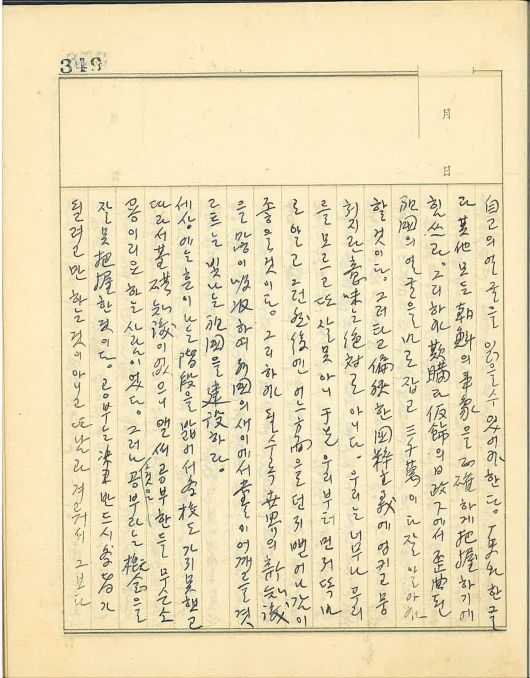 349
月
日
自己의 얼골을 읽을수 있어야한다. 한글
과 其他 모든 朝鮮의 事象을 正確하게 把握하기에
힘쓰라. 그리하야 欺瞞과 假飾의 日政下에서 歪曲된
祖國의 얼골을 바로잡고 三千萬이 다 잘 알아야
할 것이다. 그러타고 偏狹한 國粹主義에 엉키고 뭉
치지란 意味는 絶對로 아니다. 우리는 너무나 우리
을 모르고 또 잘못 아니 우선 우리부터 먼저 똑바
로 알고 그런 然後에 어느 方面으로던지 뻗어나감이
좋을것이다. 그리하야 될수록 世界의 新知識
을 많이 吸收하여 列國의 새이에서 어깨를 겨
르는 빛나는 祖國을 建設하라.
세상에는 흔이 나는 階段을 밟어서 學校도 가지 못했고
따라서 基礎知識이 없으니 앨써 공부한들 무슨 소
용이리요 하는 사람이 있다. 그러나 공부라는 것을 概念을
잘못 把握한것이다. 공부는 반드시 學者가
될려고만 하는것이 아니고 또 남과 겨루어서 그보다